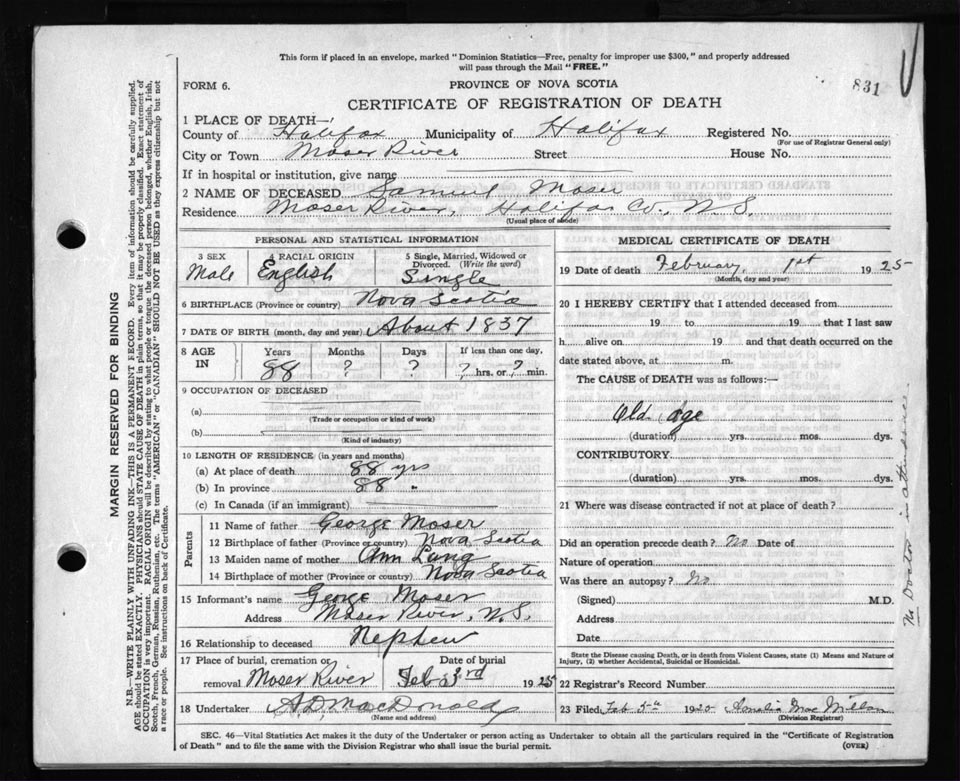 This form if placed in an envelope, marked "Dominion Statistics—Free, penalty for improper use $300," and properly addressed
will pass through the Mail "FREE."
FORM 6.
PROVINCE OF NOVA SCOTIA
831
CERTIFICATE OF REGISTRATION OF DEATH
1 PLACE OF DEATH—
County of Halifax Municipality of Halifax Registered No.
(For use of Registrar General only)
City or Town Moser River Street House No.
If in hospital or institution, give name
2 NAME OF DECEASED Samuel Moser
Residence Moser River, Halifax Co., N. S.
(Usual place of abode)
PERSONAL AND STATISTICAL INFORMATION
3 SEX 4 RACIAL ORIGIN 5 Single, Married, Widowed or
Divorced. (Write the word)
Male English Single
6 BIRTHPLACE (Province or country) Nova Scotia
7 DATE OF BIRTH (month, day and year) About 1837
8 AGE IN Years Months Days If less than one day.
88 ? ? ? hrs. or ? min.
9 OCCUPATION OF DECEASED
(a)
(Trade or occupation or kind of work)
(b)
(Kind of industry)
10 LENGTH OF RESIDENCE (in years and months)
(a) At place of death 88 yrs
(b) In province 88 "
(c) In Canada (if an immigrant)
Parents
11 Name of father George Moser
12 Birthplace of father (Province or country) Nova Scotia
13 Maiden name of mother Ann Lang
14 Birthplace of mother (Province or country) Nova Scotia
15 Informant's name George Moser
Address Moser River, N. S.
16 Relationship to deceased Nephew
17 Place of burial, cremation or Date of burial
removal Moser River Feb 3rd 1925
18 Undertaker A D MacDonald
(Name and address)
MEDICAL CERTIFICATE OF DEATH
19 Date of death February, 1st 1925
(Month, day and year)
20 I HEREBY CERTIFY that I attended deceased from
19 to 19 that I last saw
h alive on 19 and that death occurred on the
date stated above, at m.
The CAUSE of DEATH was as follows:—
Old age
(duration) yrs. mos. dys.
CONTRIBUTORY
(duration) yrs. mos. dys.
21 Where was disease contracted if not at place of death?
Did an operation precede death? No Date of
Nature of operation
Was there an autopsy? No
(Signed) M.D.
Address
Date
State the Disease causing Death, or in death from Violent Causes, state (1) Means and Nature of
Injury, (2) whether Accidental, Suicidal or Homicidal.
22 Registrar's Record Number
23 Filed Feb 5th 1925 Amelia MacMillan
(Division Registrar)
SEC. 46—Vital Statistics Act makes it the duty of the Undertaker or person acting as Undertaker to obtain all the particulars required in the "Certificate of Registration
of Death" and to file the same with the Division Registrar who shall issue the burial permit.
(OVER)
No Doctor in attendance
MARGIN RESERVED FOR BINDING
N.B.—WRITE PLAINLY WITH UNFADING INK—THIS IS A PERMANENT RECORD. Every item of information should be carefully supplied.
AGE should be stated EXACTLY. PHYSICIANS should STATE CAUSE OF DEATH in plain terms, so that it may be properly classified. Exact statement of
OCCUPATION is very important. RACIAL ORIGIN will be described by stating to what people or tongue the deceased person belonged, whether English, Irish,
Scotch, French, German, Russian, Ruthenian, etc. The terms "AMERICAN" or "CANADIAN" SHOULD NOT BE USED as they express citizenship but not
a race or people. See instructions on back of Certificate.